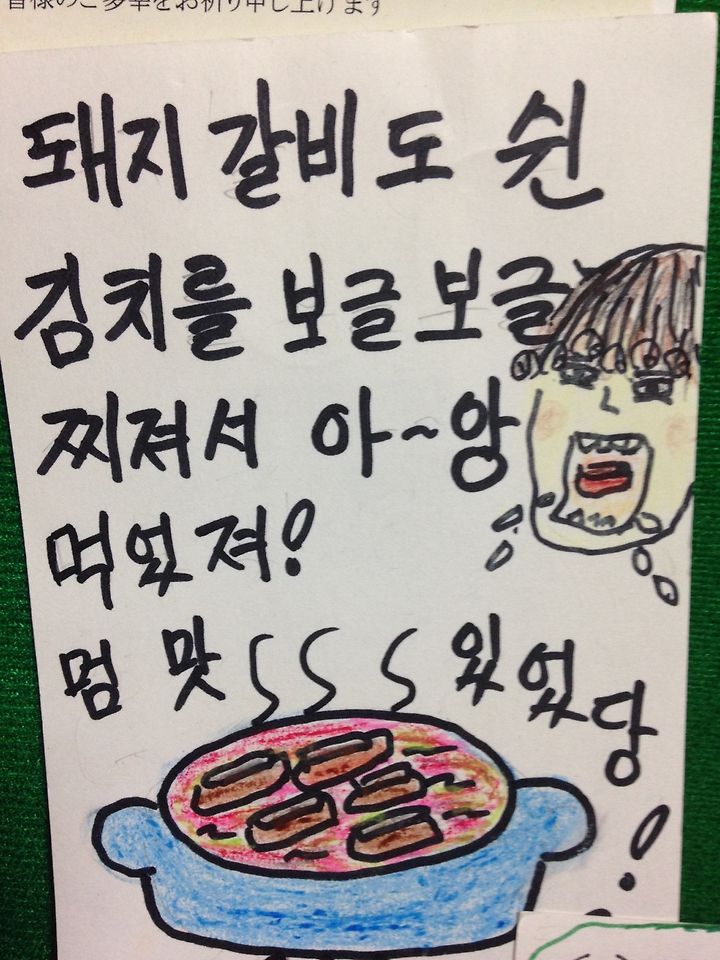 皆様のご多幸をお祈り申し上げます
돼지 갈비도 쉰
김치를 보글보글
찌져서 아~앙
먹었져!
멈 맛있었당!